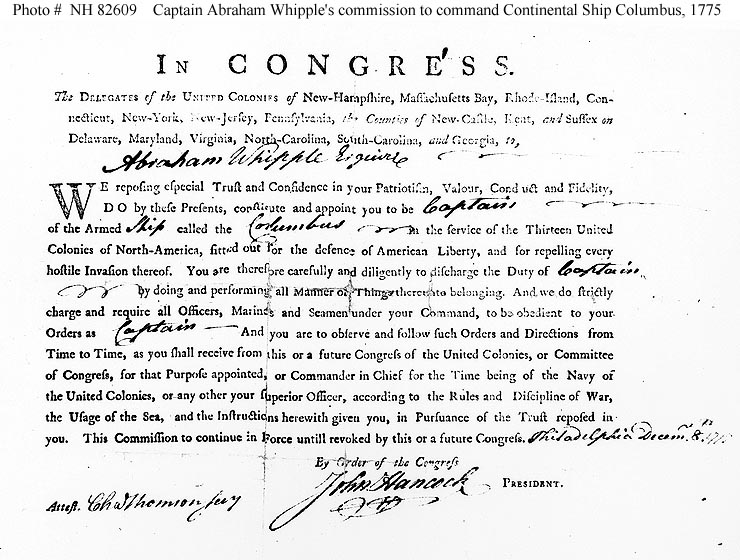 Photo # NH 82609 Captain Abraham Whipple's commission to command Continental Ship Columbus, 1775
IN CONGRESS.
The DELEGATES of the UNITED COLONIES of New-Hampshire, Maſſachuſetts Bay, Rhode-Iſland, Con-
necticut, New-York, New-Jerſey, Pennſylvania, the Counties of New-Caſtle, Kent, and Suſſex on
Delaware, Maryland, Virginia, North-Carolina, South-Carolina, and Georgia, to,
Abraham Whipple Esquire
WE repoſing eſpecial Truſt and Confidence in your Patriotiſm, Valour, Conduct and Fidelity,
DO by theſe Preſents, conſtitute and appoint you to be Captain
of the Armed Ship called the Columbus in the ſervice of the Thirteen United
Colonies of North-America, fitted out for the defence of American Liberty, and for repelling every
hoſtile Invaſion thereof. You are therefore carefully and diligently to diſcharge the Duty of Captain
by doing and performing all Manner of Things thereunto belonging. And we do ſtrictly
charge and require all Officers, Marines and Seamen under your Command, to be obedient to your
Orders as Captain And you are to obſerve and follow ſuch Orders and Directions from
Time to Time, as you ſhall receive from this or a future Congreſs of the United Colonies, or Committee
of Congreſs, for that Purpoſe appointed, or Commander in Chief for the Time being of the Navy of
the United Colonies, or any other your ſuperior Officer, according to the Rules and Diſcipline of War,
the Uſage of the Sea, and the Inſtructions herewith given you, in Purſuance of the Truſt repoſed in
you. This Commiſſion to continue in Force untill revoked by this or a future Congreſs. Philadelphia Decemr. 22th 1775
By Order of the Congreſs
John Hancock PRESIDENT.
Atteſt. Cha Thomson secy